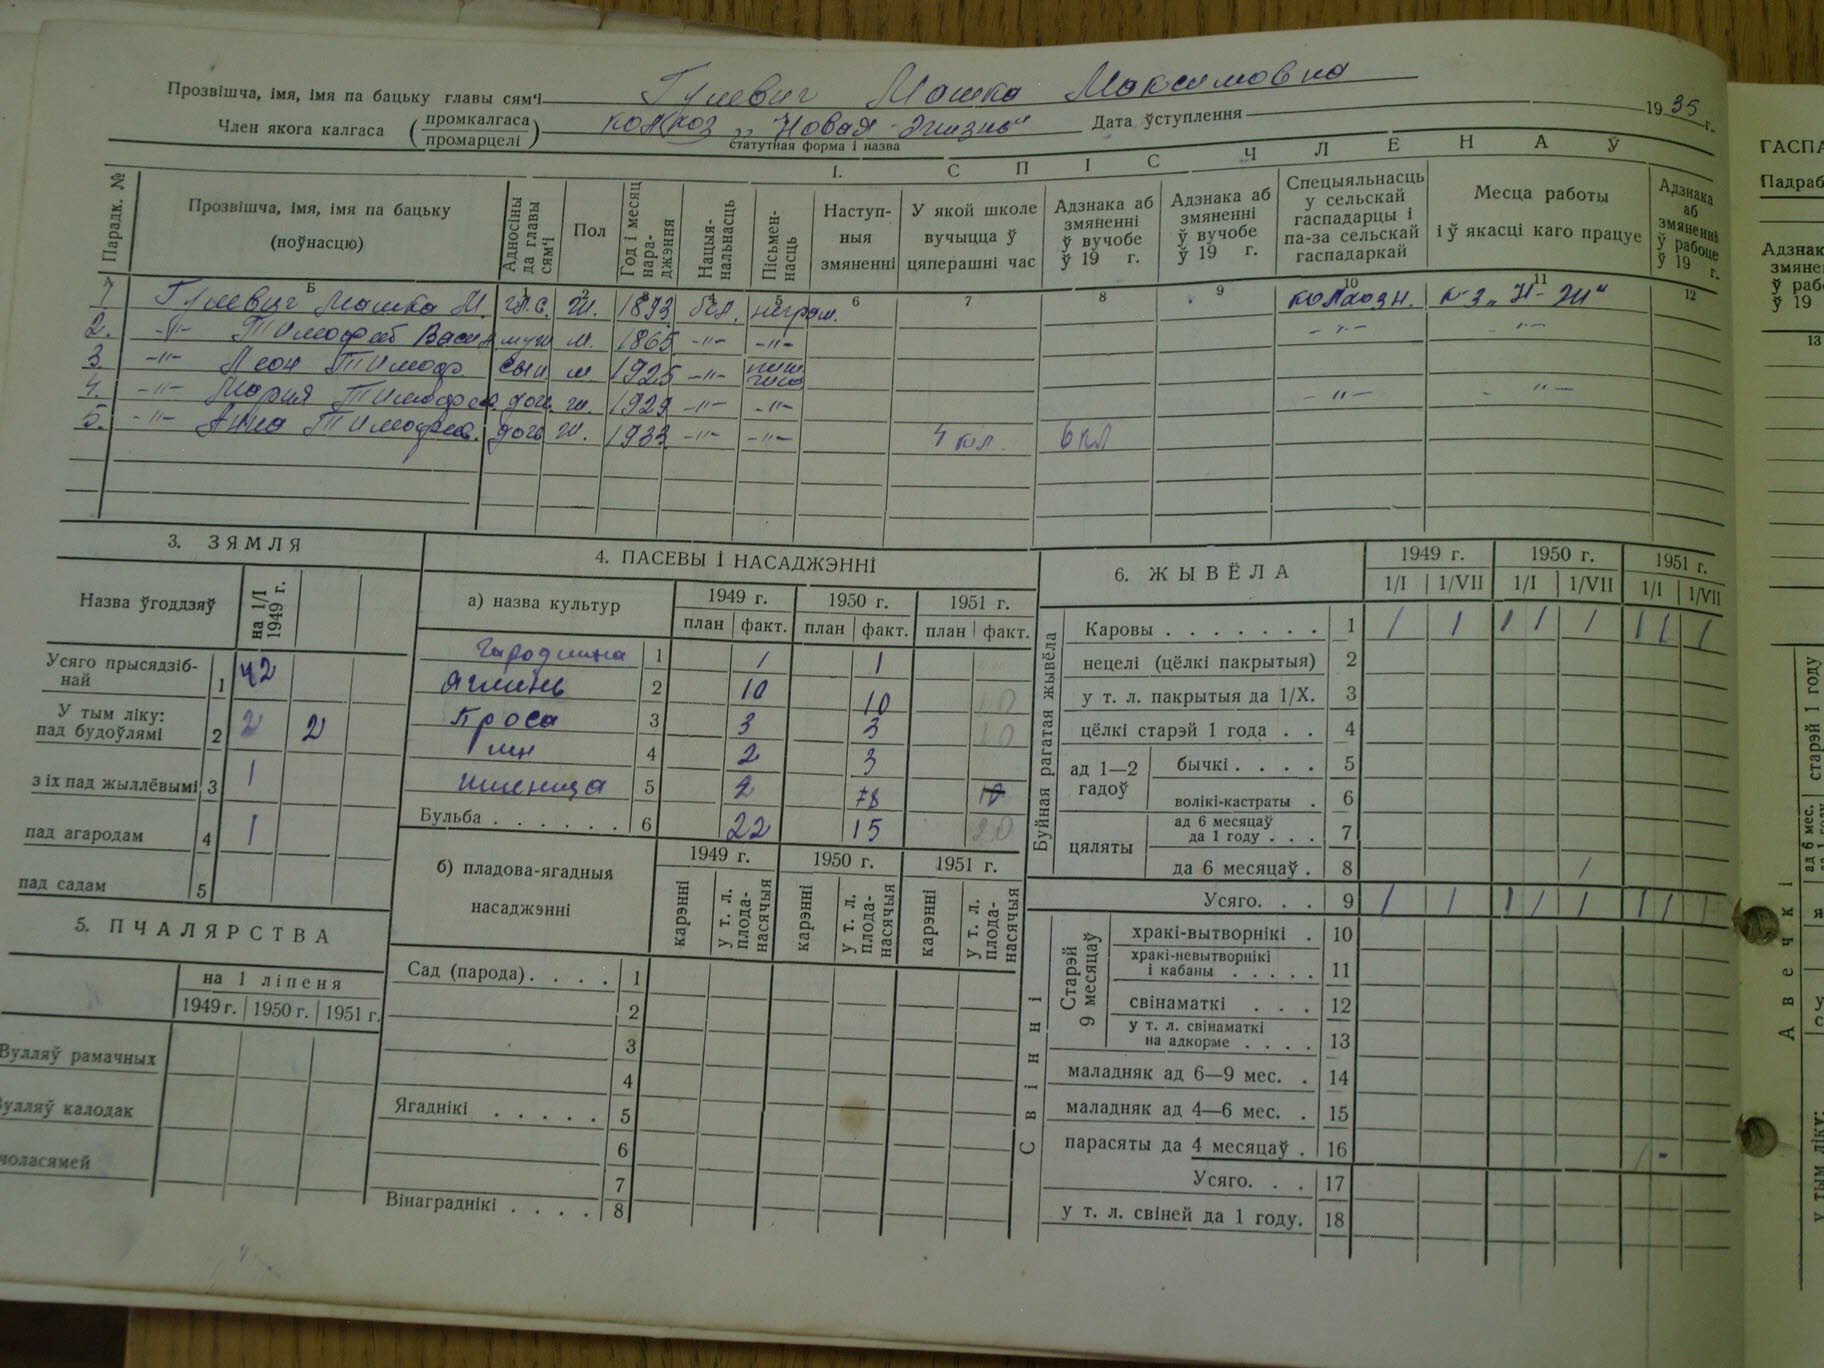 Прозвішча, імя, імя па бацьку главы сям'і Гулевич Машка Максимовна
Член якога калгаса (промкалгаса промарцелі) колхоз „Новая жизнь" Дата ўступлення 1935 г.
статутная форма і назва
I. СПІС ЧЛЕНАЎ
Парадк. № Прозвішча, імя, імя па бацьку (поўнасцю) Адносіны да главы сям'і Пол Год і месяц нараджэння Нацыянальнасць Пісьменнасць Наступныя змяненні У якой школе вучыцца ў цяперашні час Адзнака аб змяненні ў вучобе ў 19 г. Адзнака аб змяненні ў вучобе ў 19 г. Спецыяльнасць у сельскай гаспадарцы і па-за сельскай гаспадаркай Месца работы і ў якасці каго працуе Адзнака аб змяненні ў рабоце ў 19 г.
А Б 1 2 3 4 5 6 7 8 9 10 11 12
1 Гулевич Машка М. гл.с. ж. 1893 бел. неграм. колхозн. к-з „Н-Ж"
2. -"- Тимофей Васил муж м. 1865 -"- -"- -"- -"-
3. -"- Леон Тимоф. сын м 1925 -"-
4. -"- Мария Тимофеев. доч. ж. 1929 -"- -"- -"- -"-
5. -"- Анна Тимофеев. доч ж. 1933 -"- -"- 4 кл. 6 кл
3. ЗЯМЛЯ
Назва ўгоддзяў на 1/I 1949 г.
Усяго прысядзібнай 1 42
У тым ліку: пад будоўлямі 2 2 2
з іх пад жыллёвымі 3 1
пад агародам 4 1
пад садам 5
5. ПЧАЛЯРСТВА
на 1 ліпеня
1949 г. 1950 г. 1951 г.
Вулляў рамачных
Вулляў калодак
4. ПАСЕВЫ І НАСАДЖЭННІ
а) назва культур 1949 г. 1950 г. 1951 г.
план факт. план факт. план факт.
Гародніна 1 1 1
Ячмень 2 10 10 10
Проса 3 3 3 10
4 2 3
Пшеница 5 2
Бульба 6 22 15 20
б) пладова-ягадныя насаджэнні 1949 г. 1950 г. 1951 г.
карэнні у т. л. плоданасячыя карэнні у т. л. плоданасячыя карэнні у т. л. плоданасячыя
Сад (парода) 1
2
3
4
Ягаднікі 5
6
7
Вінаграднікі 8
6. ЖЫВЁЛА 1949 г. 1950 г. 1951 г.
1/I 1/VII 1/I 1/VII 1/I 1/VII
Буйная рагатая жывёла
Каровы 1 1 1 1 1 1 1 1 1
нецелі (цёлкі пакрытыя) 2
у т. л. пакрытыя да 1/X. 3
цёлкі старэй 1 года 4
ад 1—2 гадоў бычкі 5
волікі-кастраты 6
цяляты ад 6 месяцаў да 1 году 7
да 6 месяцаў 8 1
Усяго 9 1 1 1 1 1 1 1 1
Свінні
Старэй 9 месяцаў
хракі-вытворнікі 10
хракі-невытворнікі і кабаны 11
свінаматкі 12
у т. л. свінаматкі на адкорме 13
маладняк ад 6—9 мес. 14
маладняк ад 4—6 мес. 15
парасяты да 4 месяцаў 16
Усяго 17
у т. л. свіней да 1 году. 18
ГАСПА
Падраб
Адзнак
змяне
ў раб
ў 19
13
Авечкі
ад 6 мес.
старэй 1 году
у тым ліку: